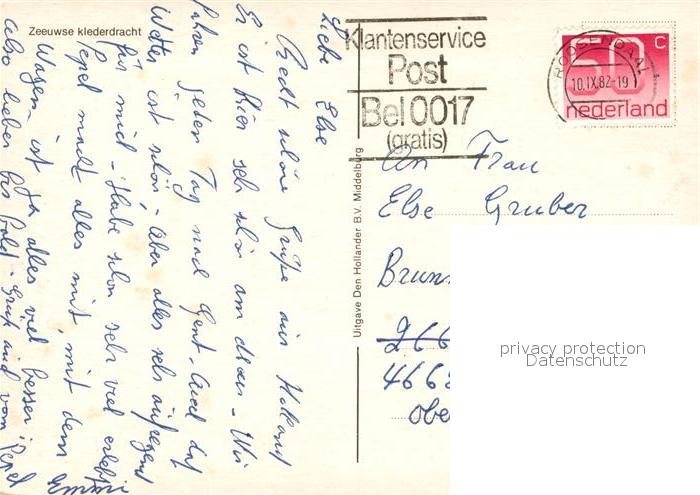 Zeeuwse klederdracht
Liebe Else
Recht schöne Grüße aus Holland
Es ist hier sehr schön am – Wir
fahren jeden Tag nach Gent. Auch das
Wetter ist schön, Aber alles sehr aufregend
für mich – Habe schon sehr viel erlebt
Pepel macht alles mit, mit dem
Wagen ist ja alles viel besser
Also lieber bis bald – Gruß auch vom Pepel
Emmi
Uitgave Den Hollander B.V. Middelburg
Klantenservice
Post
Bel 0017
(gratis)
ROOSENDAAL
10.IX.82-19
50 c
nederland
An Frau
Else Gruber
Brun
266
466
Obe
privacy protection
Datenschutz